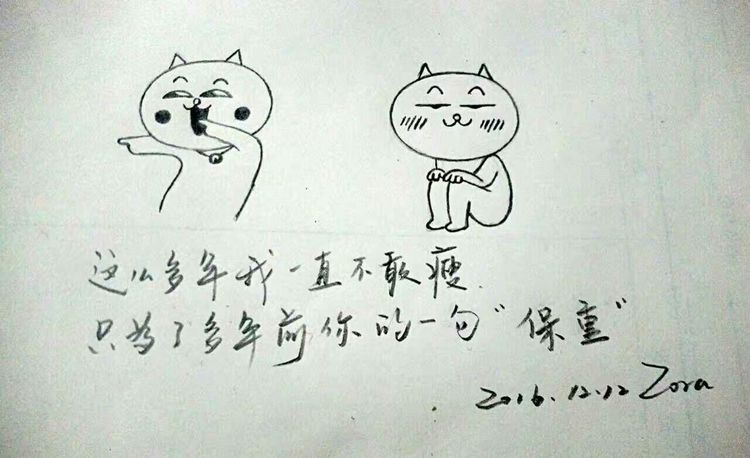 这么多年我一直不敢瘦.
只为了多年前你的一句"保重"
2016.12.12 Zora